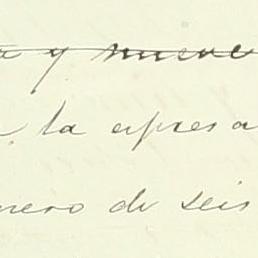 y nueve
la espresa
nero de seis